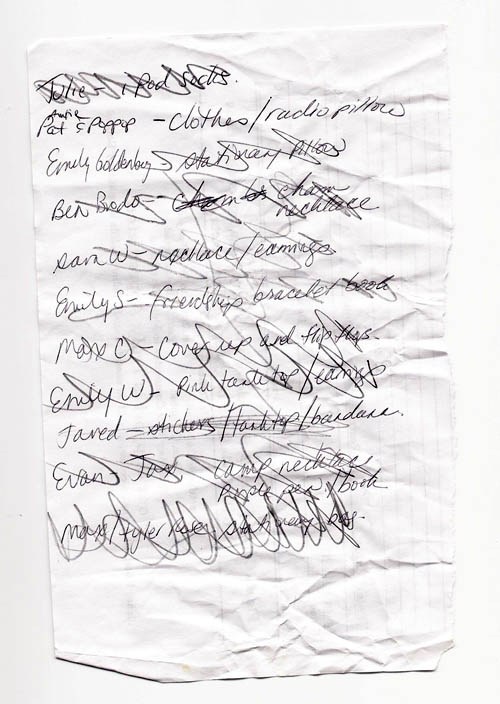 Julie - iPod socks.
Auntie
Pat & Poppop - clothes/radio pillow
Emily Goldenberg - stationary pillow
Ben - charm
necklace
Sara W - necklace/earrings
Emily S - friendship bracelet book
Max C - Cover up and flip flops.
Emily W - Pink tank top/earrings
Jared - stickers/tanktop/bandana.
Evan - Jax camp necklace
pen/book
Max/Tyler stationary